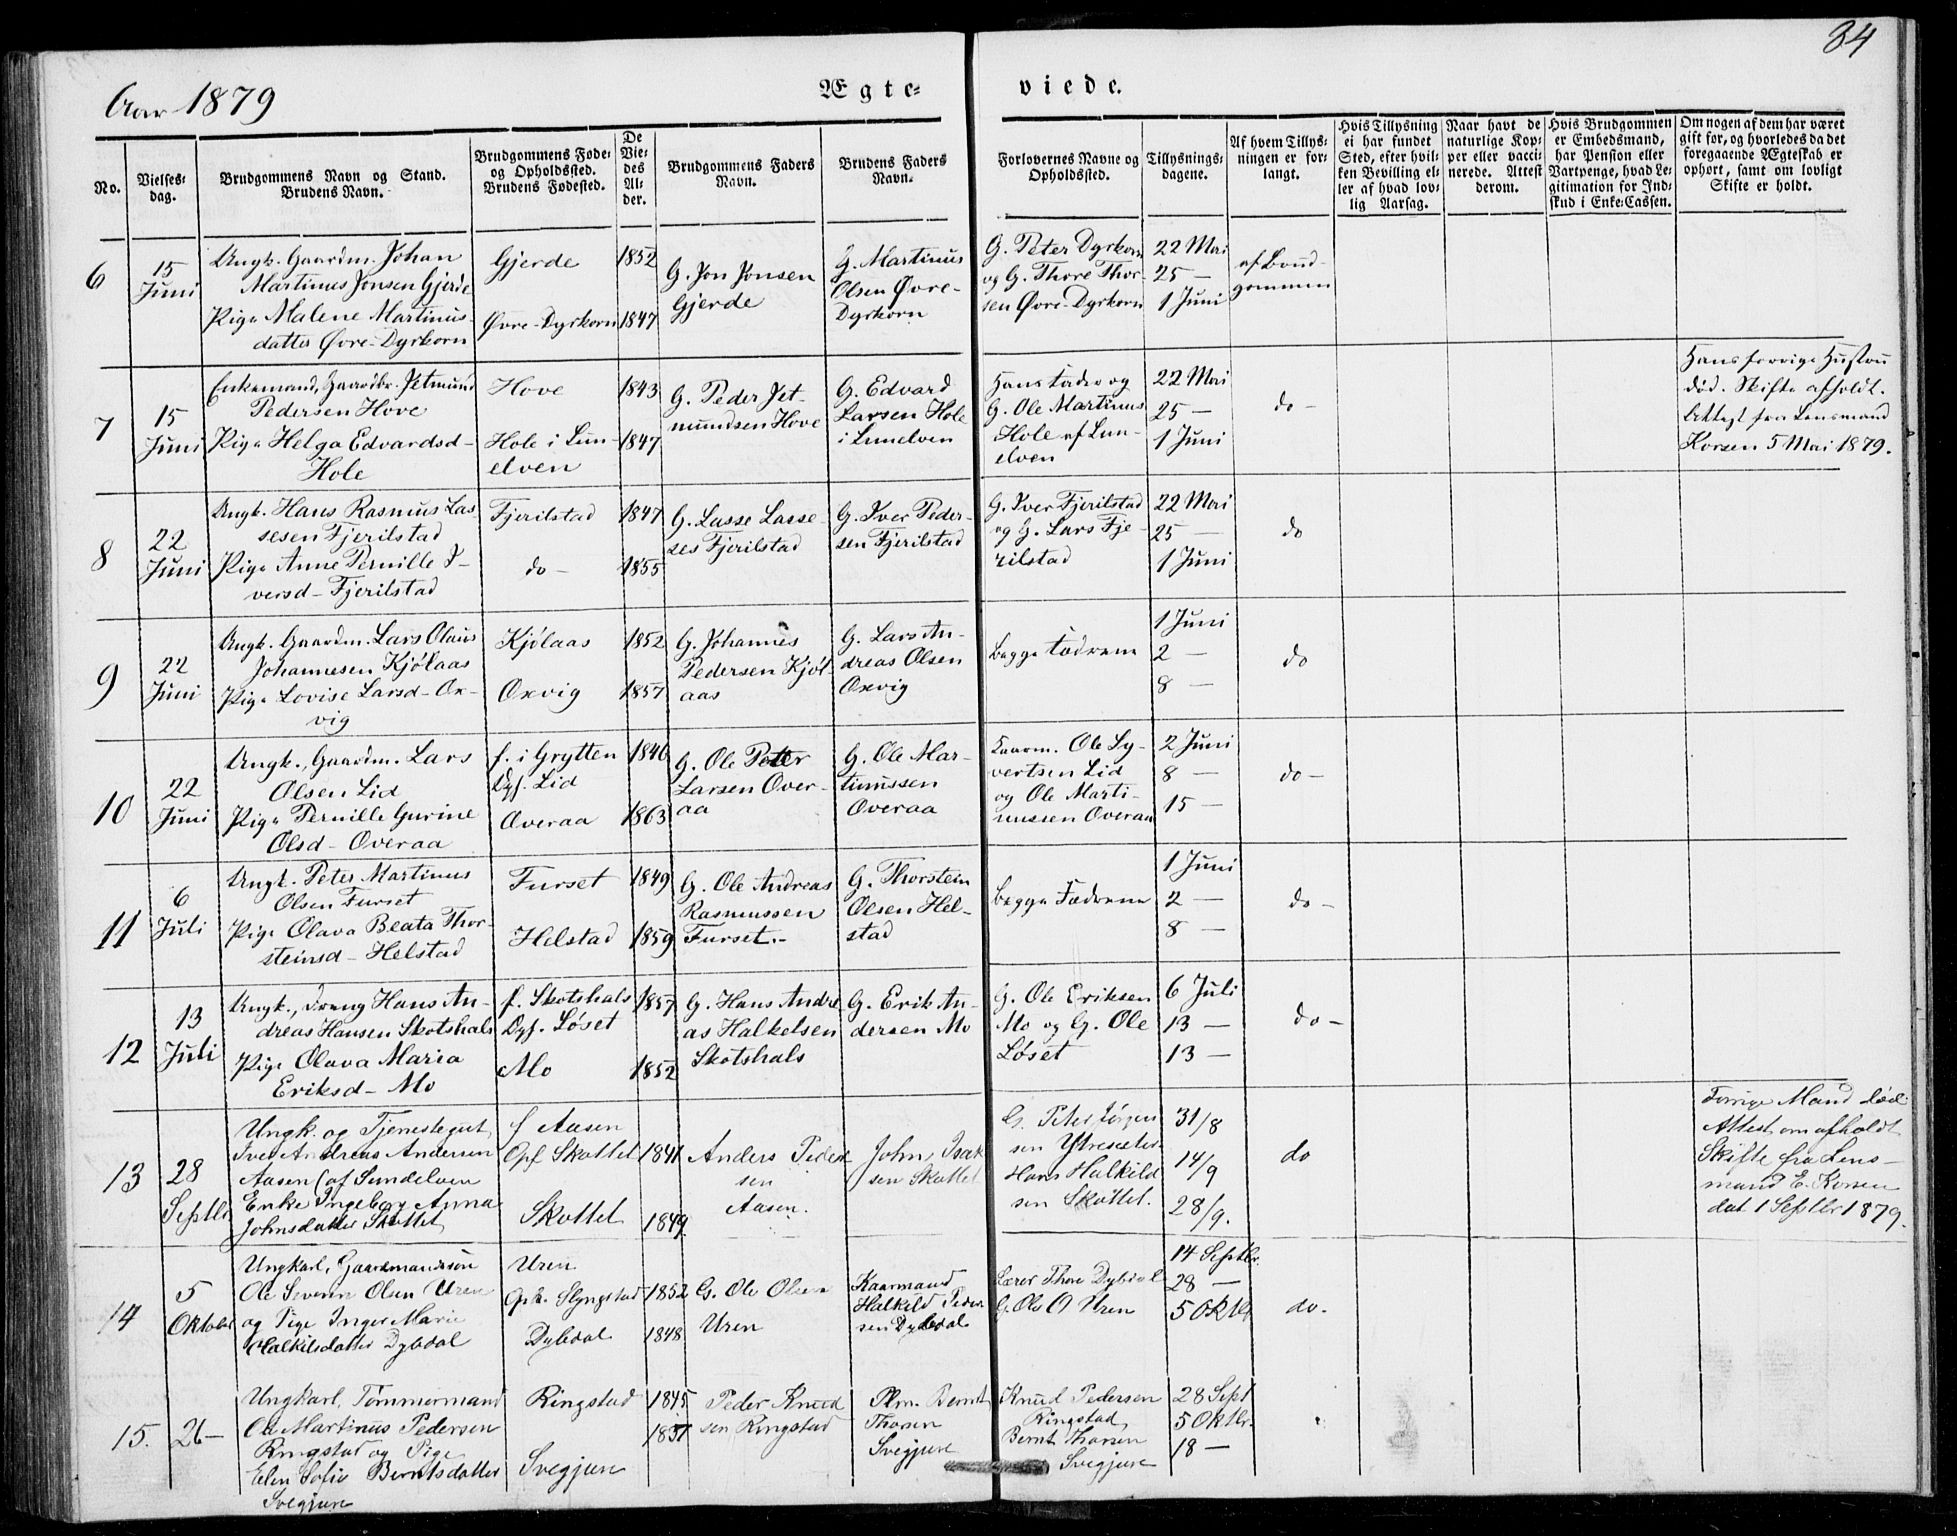 84
Aar 1879
Ægte-
viede.
No.
Vielses-
dag.
Brudgommens Navn og Stand.
Brudens Navn.
Brudgommens Føde-
og Opholdssted.
Brudens Fødested.
De
Vie-
des
Al-
der.
Brudgommens Faders
Navn.
Brudens Faders
Navn.
Forlovernes Navne og
Opholdssted.
Tillysnings-
dagene.
Af hvem Tillys-
ningen er for-
langt.
Hvis Tillysning
ei har fundet
Sted, efter hvil-
ken Bevilling el-
ler af hvad lov-
lig Aarsag.
Naar havt de
naturlige Kop-
per eller vacci-
nerede. Attest
derom.
Hvis Brudgommen
er Embedsmand,
har Pension eller
Vartpenge, hvad Le-
gitimation for Ind-
skud i Enke-Cassen.
Om nogen af dem har været
gift før, og hvorledes da det
foregaaende Ægteskab er
ophørt, samt om lovligt
Skifte er holdt.
6
15
Juni
Ungk. Gaardm. Johan
Martinus Jonsen Gjerde
Pige Malene Martinus-
datter Øvre-Dyrkorn
Gjerde
Øvre-Dyrkorn
1852
1847
G. Jon Jonsen
Gjerde
G. Martinus
Olsen Øvre-
Dyrkorn
G. Peter Dyrkorn
og G. Thore Thor-
sen Øvre-Dyrkorn
22 Mai
25 —
1 Juni
af Brud-
gommen
7
15
Juni
Enkemand, Gaardbr. Jetmund
Pedersen Hove
Pige Helga Edvardsd-
Hole
Hove
Hole i Sun-
elven
1843
1847
G. Peder Jet-
mundsen Hove
G. Edvard
Larsen Hole
i Sunelven
Hans Fader og
G. Ole Martinus
Hole af Sun-
elven
22 Mai
25 —
1 Juni
do —
Hans forrige Hustru
død. Skifte afholdt.
Attest fra Lensmand
Korsen 5 Mai 1879.
8
22
Juni
Ungk. Hans Rasmus Las-
sesen Fjerilstad
Pige Anne Pernille I-
versd- Fjerilstad
Fjerilstad
do —
1847
1855
G. Lasse Lasse-
ses Fjerilstad
G. Iver Peder-
sen Fjerilstad
G. Iver Fjerilstad
og G. Lars Fje-
rilstad
22 Mai
25 —
1 Juni
do
9
22
Juni
Ungk. Gaardm. Lars Olaus
Johannesen Kjölaas
Pige Lovise Larsd- Ox-
vig
Kjölaas
Oxvig
1852
1857
G. Johannes
Pedersen Kjöl-
aas
G. Lars An-
dreas Olsen
Oxvig
Begge Fædrene
1 Juni
2 —
8 —
do
10
22
Juni
Ungk., Gaardm. Lars
Olsen Lid
Pige Pernille Gurine
Olsd- Overaa
f. i Grytten
Oph. Lid
Overaa
1846
1863
G. Ole Peter
Larsen Over-
aa
G. Ole Mar-
tinussen
Overaa
Kaarm. Ole Sy-
vertsen Lid
og Ole Marti-
nussen Overaa
2 Juni
8 —
15 —
do —
11
6
Juli
Ungk. Peter Martinus
Olsen Furset
Pige Olava Beata Thor-
steinsd- Helstad
Furset
Helstad
1849
1859
G. Ole Andreas
Rasmussen
Furset.-
G. Thorstein
Olsen Hel-
stad
Begge Fædrene
1 Juni
2 —
8 —
do —
12
13
Juli
Ungk., Dreng Hans An-
dreas Hansen Skotshals
Pige Olava Maria
Eriksd- Mo
f. Skotshals
Oph. Løset
Mo
1857
1852
G. Hans Andre
as Halkelsen
Skotshals
G. Erik An-
dersen Mo
G. Ole Eriksen
Mo og G. Ole
Løset
6 Juli
13 —
13 —
do —
13
28
Septbr
Ungk. og Tjenestegut
Iver Andreas Andersen
Aasen (af Sundelven
Enke Ingeborg Anna
Johnsdatter Skottet
f Aasen
Oph Skottet
Skottet
1841
1849.
Anders Peder
sen
Aasen.
John Isak
sen Skottet
G. Peter Jørgen
sen Ytresæter
Hans Halkild
sen Skottet.
31/8
14/9
28/9.
do
Forrige Mand død.
Attest om afholdt
Skifte fra Lens-
mand E. Korsen
dat 1 Septbr 1879.
14
5
Oktober
Ungkarl, Gaardmandssøn
Ole Severin Olsen Uren
og Pige Inger Marie
Halkildsdatter Dybdal
Uren
Oph. Slyngstad
Dybdal
1852
1848
G. Ole Olsen
Uren
Kaarmand
Halkild Peder
sen Dybdal
Lærer Thore Dybdal
G. Ole O Uren
14 Septbr.
28 —
5 Oktb
do.
15.
26 —
Ungkarl, Tømmermand
Ole Martinus Pedersen
Ringstad og Pige
Elen Sofie Berntsdatter
Svegjure
Ringstad
Svegjure
1845
1857
Peder Knud
sen Ringstad
Plm. Bernt
Thorsen
Svegjure
Knud Pedersen
Ringstad
Bernt Thorsen
Svegjure
28 Sept
5 Oktbr.
18 —